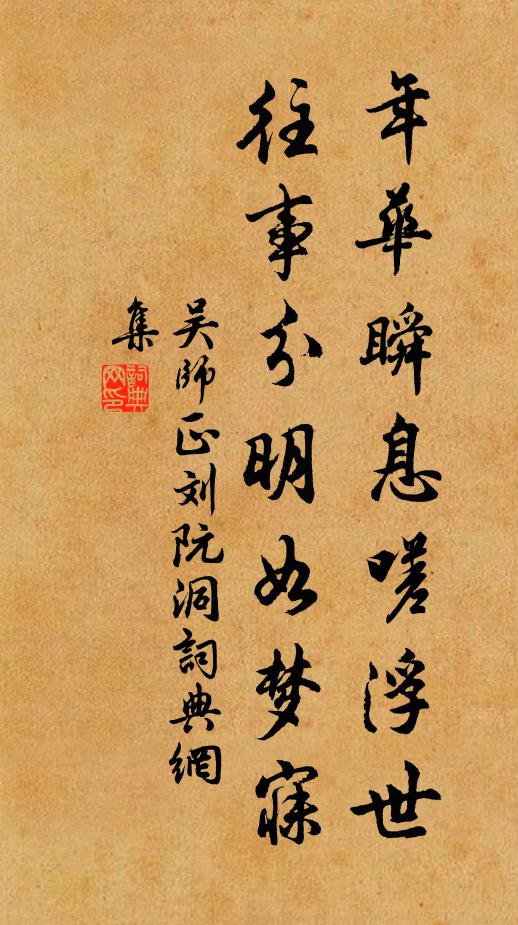 年華瞬息嗟浮世
往事分明如梦寐
吴師正刘阮洞詞典網
集
詞典网印